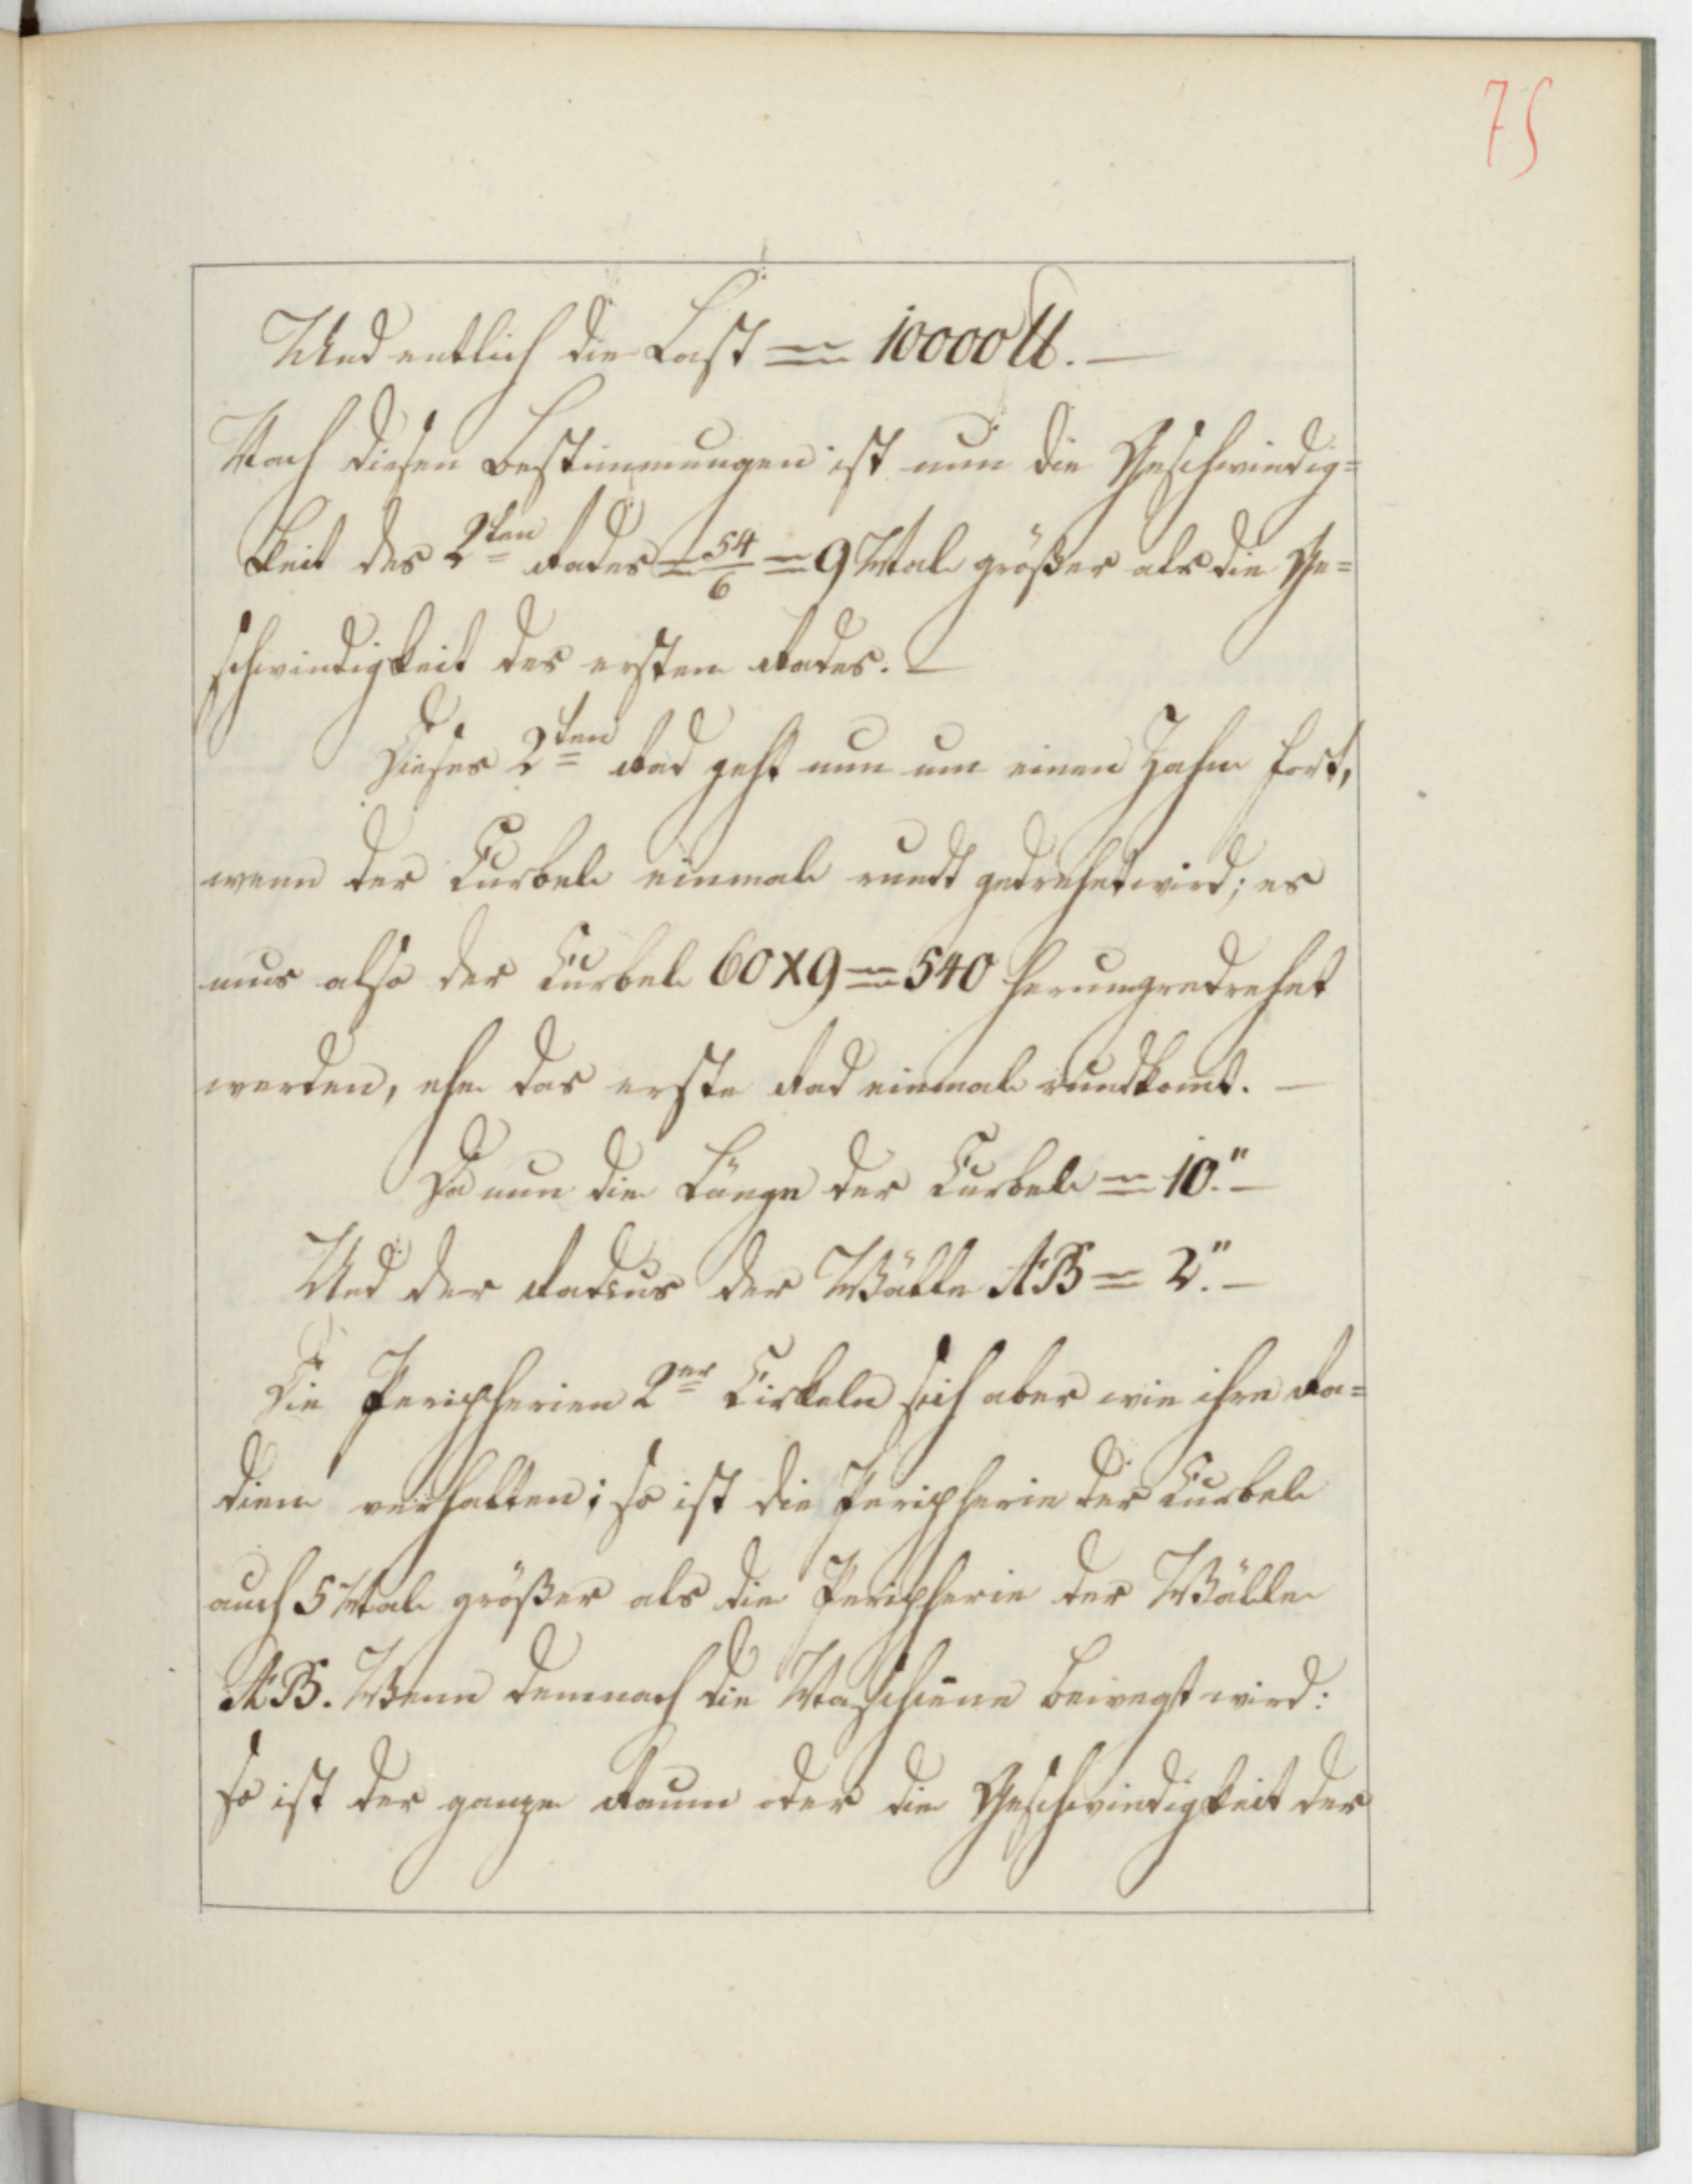 75
Und entlich die Last = 10000 ℔. —
Nach diesen Bestimmungen ist nun die Geschwindig=
keit des 2ten Rades = 54/6 = 9 Mal größer als die Ge=
schwindigkeit des ersten Rades. —
Dieses 2ten Rad geht nun um einen Zahn fort,
wenn der Curbel einmal rundt gedrehet wird; es
mus also der Curbel 60 x 9 = 540 herumgedrehet
werden, ehe das erste Rad einmal rundkomt. —
Da nun die Länge der Curbel = 10." —
Und der Radius der Wälle AB = 2." —
Die Peripherien 2er Cirkeln sich aber wie ihre Ra=
dien verhalten; so ist die Peripherie der Curbel
auch 5 Mal größer als die Peripherie der Wälle
AB. Wenn demnach die Maschiene bewegt wird:
so ist der ganze Raum oder die Geschwindigkeit der